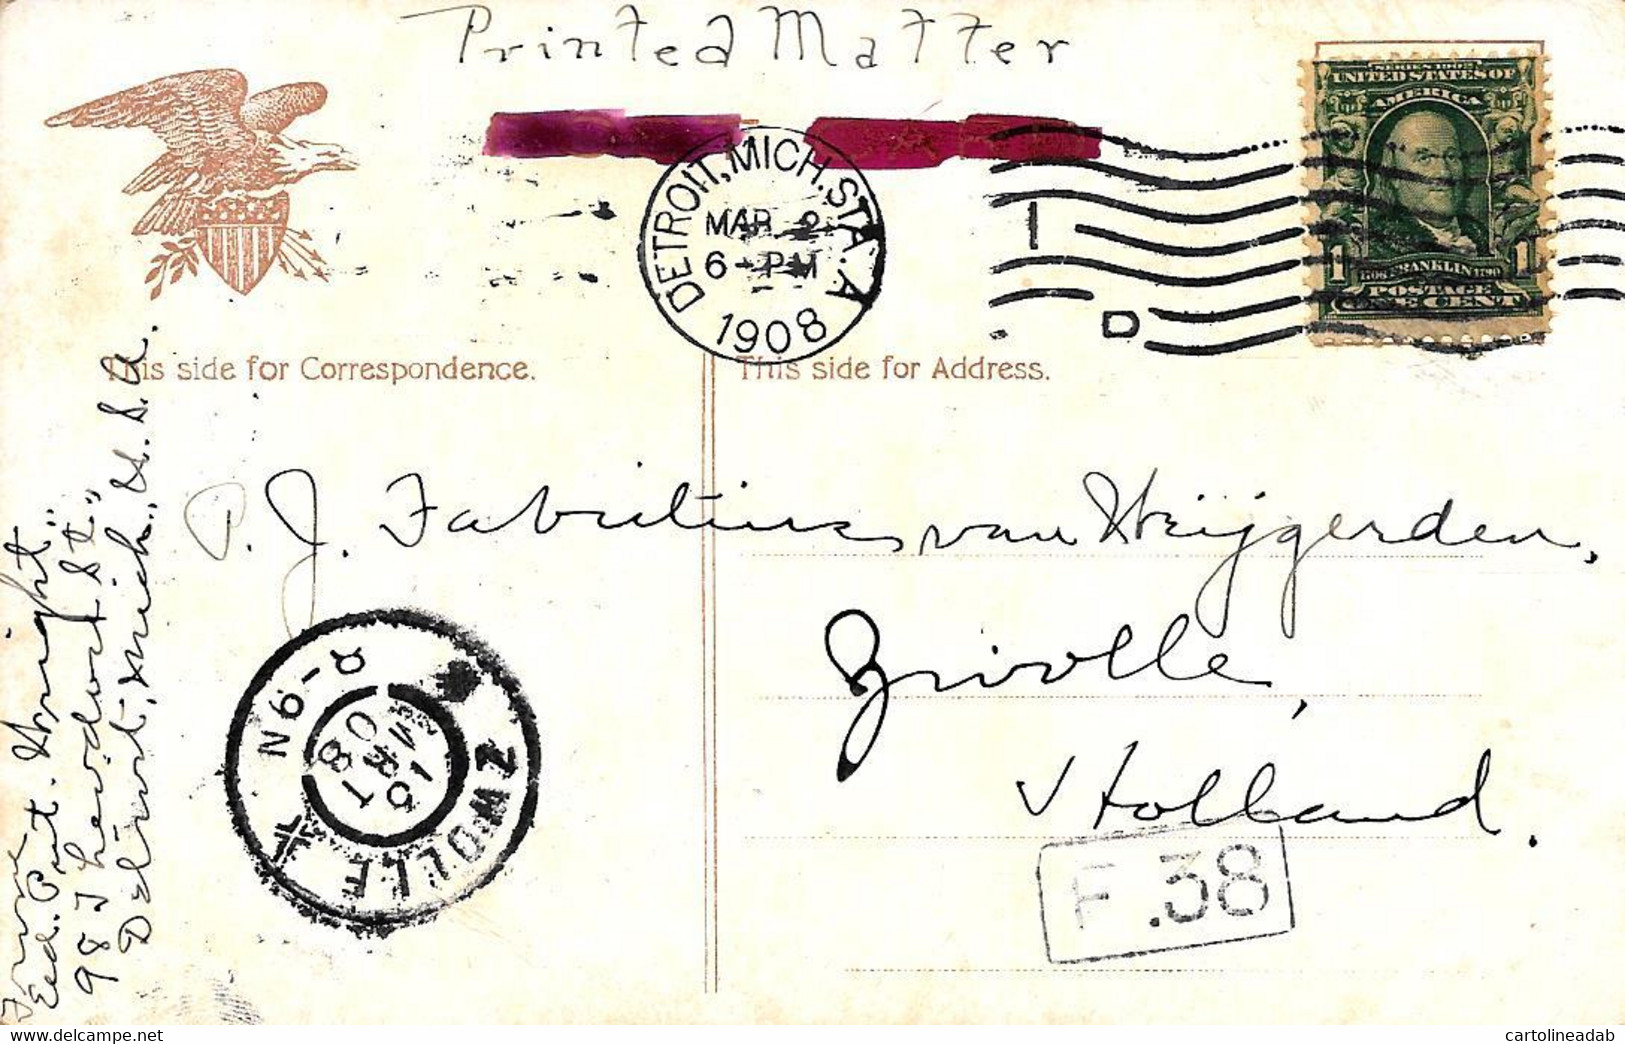 Printed Matter
SERIES 1902
UNITED STATES OF
AMERICA
1 1708 FRANKLIN 1790 1
POSTAGE
ONE CENT
DETROIT, MICH. STA. A
MAR 2
6 - PM
1908
1
D
This side for Correspondence.
This side for Address.
P. J. Fabritius van Heijgerden,
Zwolle,
Holland.
F.38
ZWOLLE
15 MRT
08
9N
From
Ed. Put. Wright"
98 St."
Detroit, Mich., U.S.A.
cartolineadab